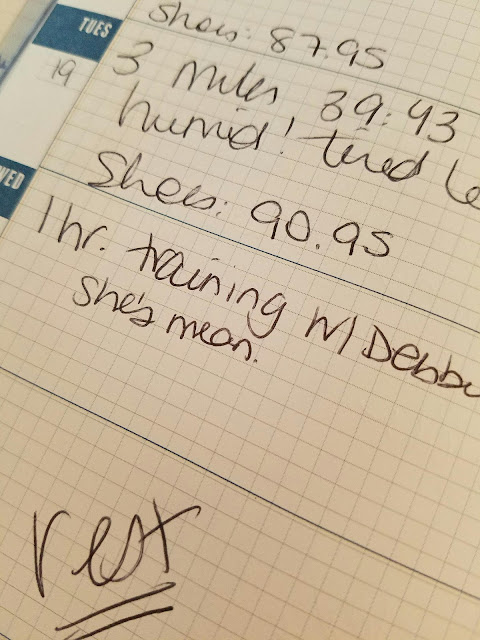 shoes: 87.95
TUES
19
3 miles 39:43
humid! tired le
Shoes: 90.95
WED
1 hr. training w/ Debb
she's mean.
rest